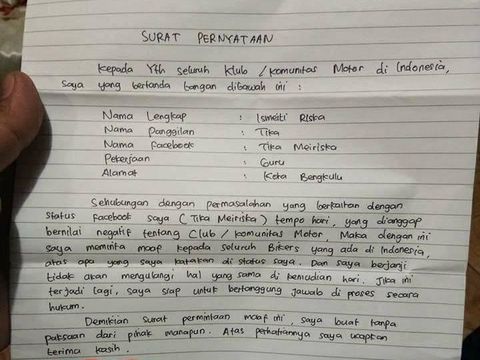 SURAT PERNYATAAN
Kepada Yth seluruh Klub / Komunitas Motor di Indonesia,
Saya yang bertanda tangan dibawah ini :
Nama Lengkap : Ismiati Riska
Nama Panggilan : Tika
Nama Facebook : Tika Meiriska
Pekerjaan : Guru
Alamat : Kota Bengkulu
Sehubungan dengan permasalahan yang berkaitan dengan
status Facebook saya (Tika Meiriska) tempo hari, yang dianggap
bernilai negatif tentang Club / Komunitas Motor, Maka dengan ini
saya meminta maaf kepada seluruh Bikers yang ada di Indonesia,
atas apa yang saya katakan di status saya. Dan saya berjanji
tidak akan mengulangi hal yang sama di kemudian hari. Jika ini
terjadi lagi, saya siap untuk bertanggung jawab di proses secara
hukum.
Demikian surat permintaan maaf ini saya buat tanpa
paksaan dari pihak manapun. Atas perhatiannya saya ucapkan
terima kasih.